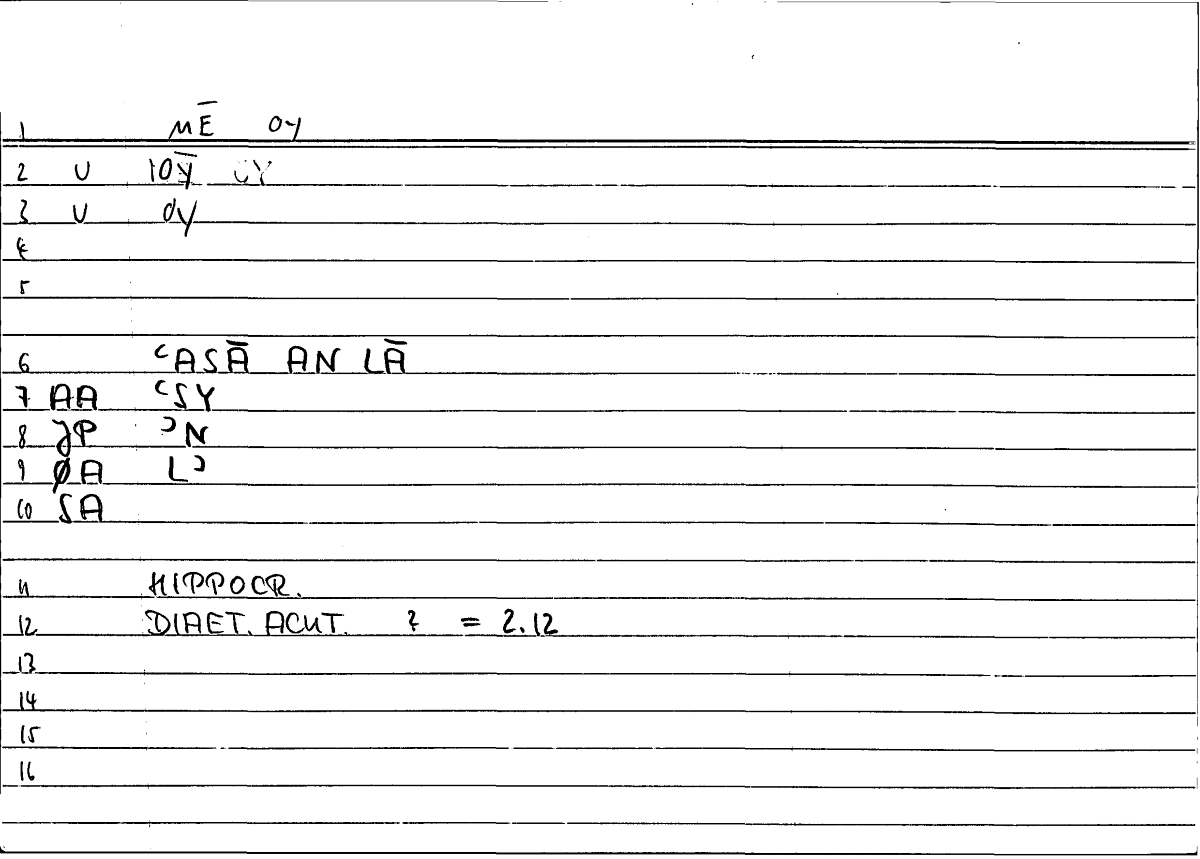 1 MĒ OY
2 U 10Ȳ OY
3 U OY
4
5
6 ʿASĀ AN LĀ
7 AA ʿSY
8 JP ʾN
9 ØA Lʾ
10 SA
11 HIPPOCR.
12 DIAET. ACUT. ? = 2.12
13
14
15
16